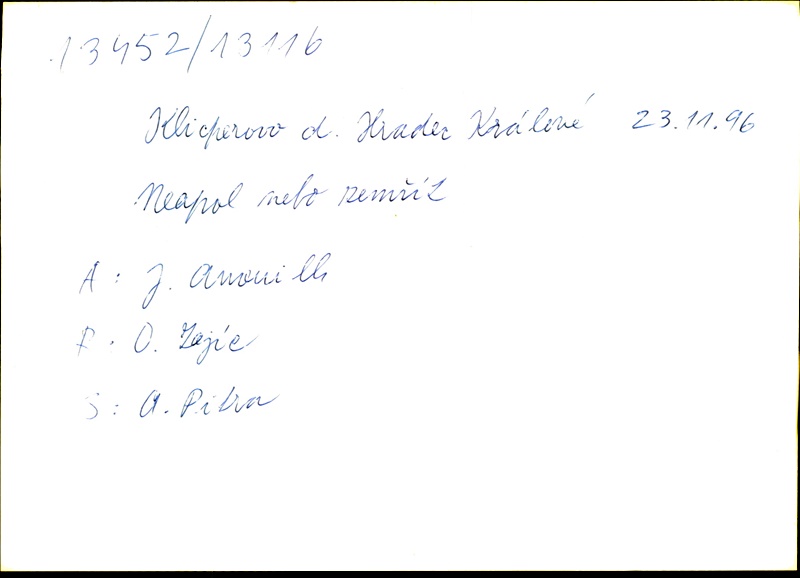 13452/13116
Klicperovo d. Hradec Králové 23.11.96
Neapol nebo zemřít
A: J. Anouilh
R: O. Zajíc
S: A. Pitra